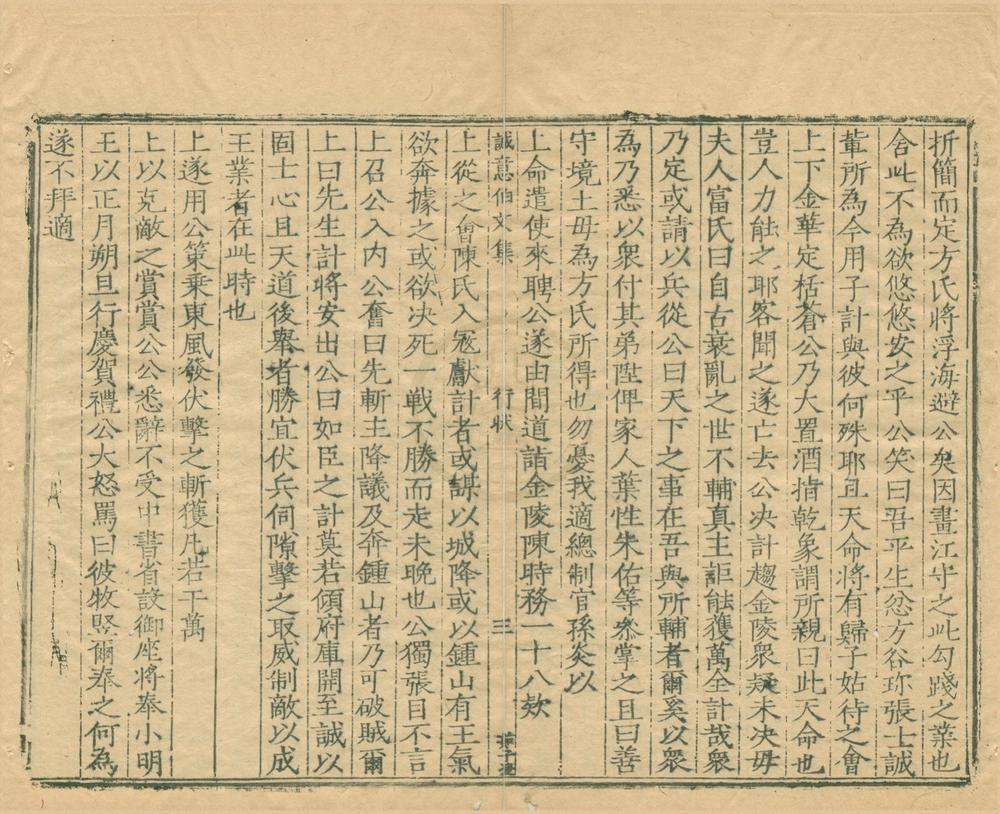 折簡而定方氏將浮海避公矣因畫江守之此勾踐之業也
舎此不為欲悠悠安之乎公笑曰吾平生忿方谷珎張士誠
軰所為今用子計與彼何殊耶且天命將有歸子姑待之會
上下金華定栝蒼公乃大置酒指乾象謂所親曰此天命也
豈人力能之耶客聞之遂亡去公决計趨金陵衆疑未决母
夫人富氏曰自古衰亂之世不輔真主詎能獲萬全計哉衆
乃定或請以兵從公曰天下之事在吾與所輔者爾奚以衆
為乃悉以衆付其弟陞俾家人葉性朱佑等叅掌之且曰善
守境土毋為方氏所得也勿憂我適總制官孫炎以
上命遣使來聘公遂由間道詣金陵陳時務一十八欵
誠意伯文集 行狀 三
上從之會陳氏入冦獻計者或謀以城降或以鍾山有王氣
欲奔據之或欲决死一戰不勝而走未晩也公獨張目不言
上召公入内公奮曰先斬主降議及奔鍾山者乃可破賊爾
上曰先生計將安出公曰如臣之計莫若傾府庫開至誠以
固士心且天道後舉者勝宜伏兵伺隙擊之取威制敵以成
王業者在此時也
上遂用公策乗東風發伏擊之斬獲凡若干萬
上以克敵之賞賞公公悉辭不受中書省設御座將奉小明
王以正月朔旦行慶賀禮公大怒罵曰彼牧竪爾奉之何為
遂不拜適